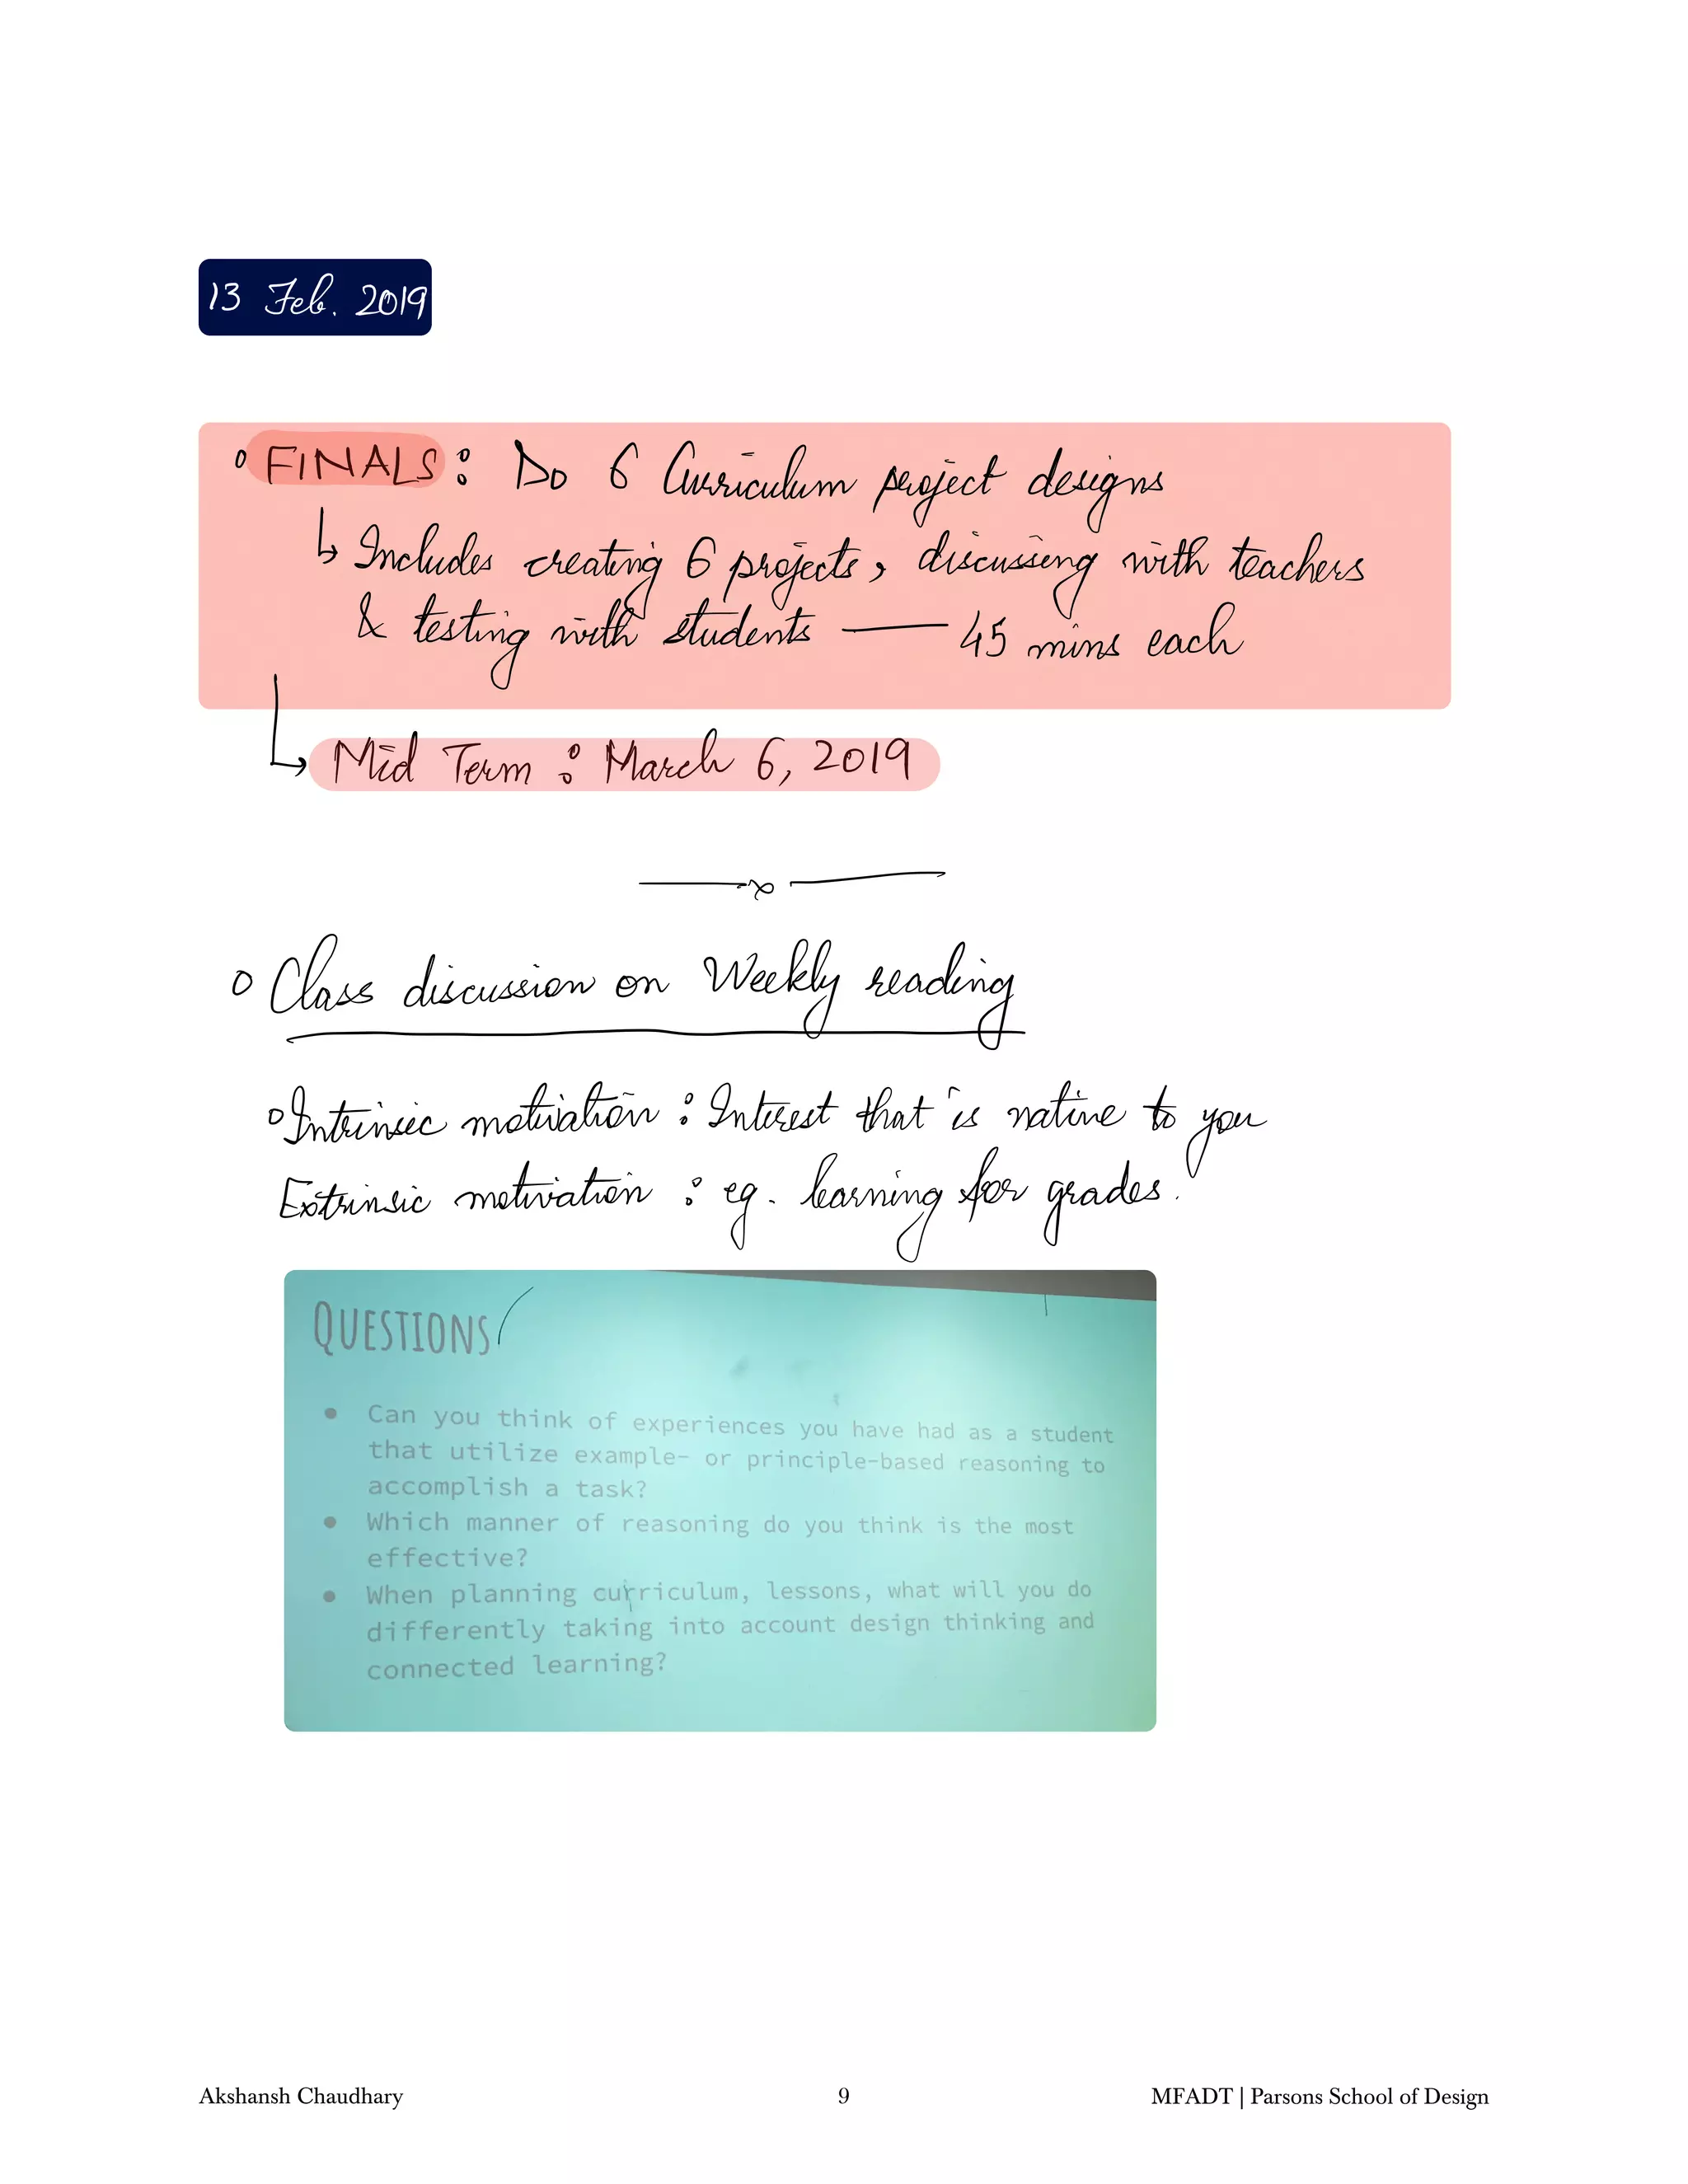 13 Feb. 2019
FINALS: Do 6 Curriculum project designs
Includes creating 6 projects, discussing with teachers
& testing with students — 45 mins each
Mid Term: March 6, 2019
Class discussion on Weekly reading
Intrinsic motivation: Interest that is native to you
Extrinsic motivation: eg. learning for grades.
QUESTIONS
● Can you think of experiences you have had as a student
that utilize example- or principle-based reasoning to
accomplish a task?
● Which manner of reasoning do you think is the most
effective?
● When planning curriculum, lessons, what will you do
differently taking into account design thinking and
connected learning?
Akshansh Chaudhary 9 MFADT | Parsons School of Design